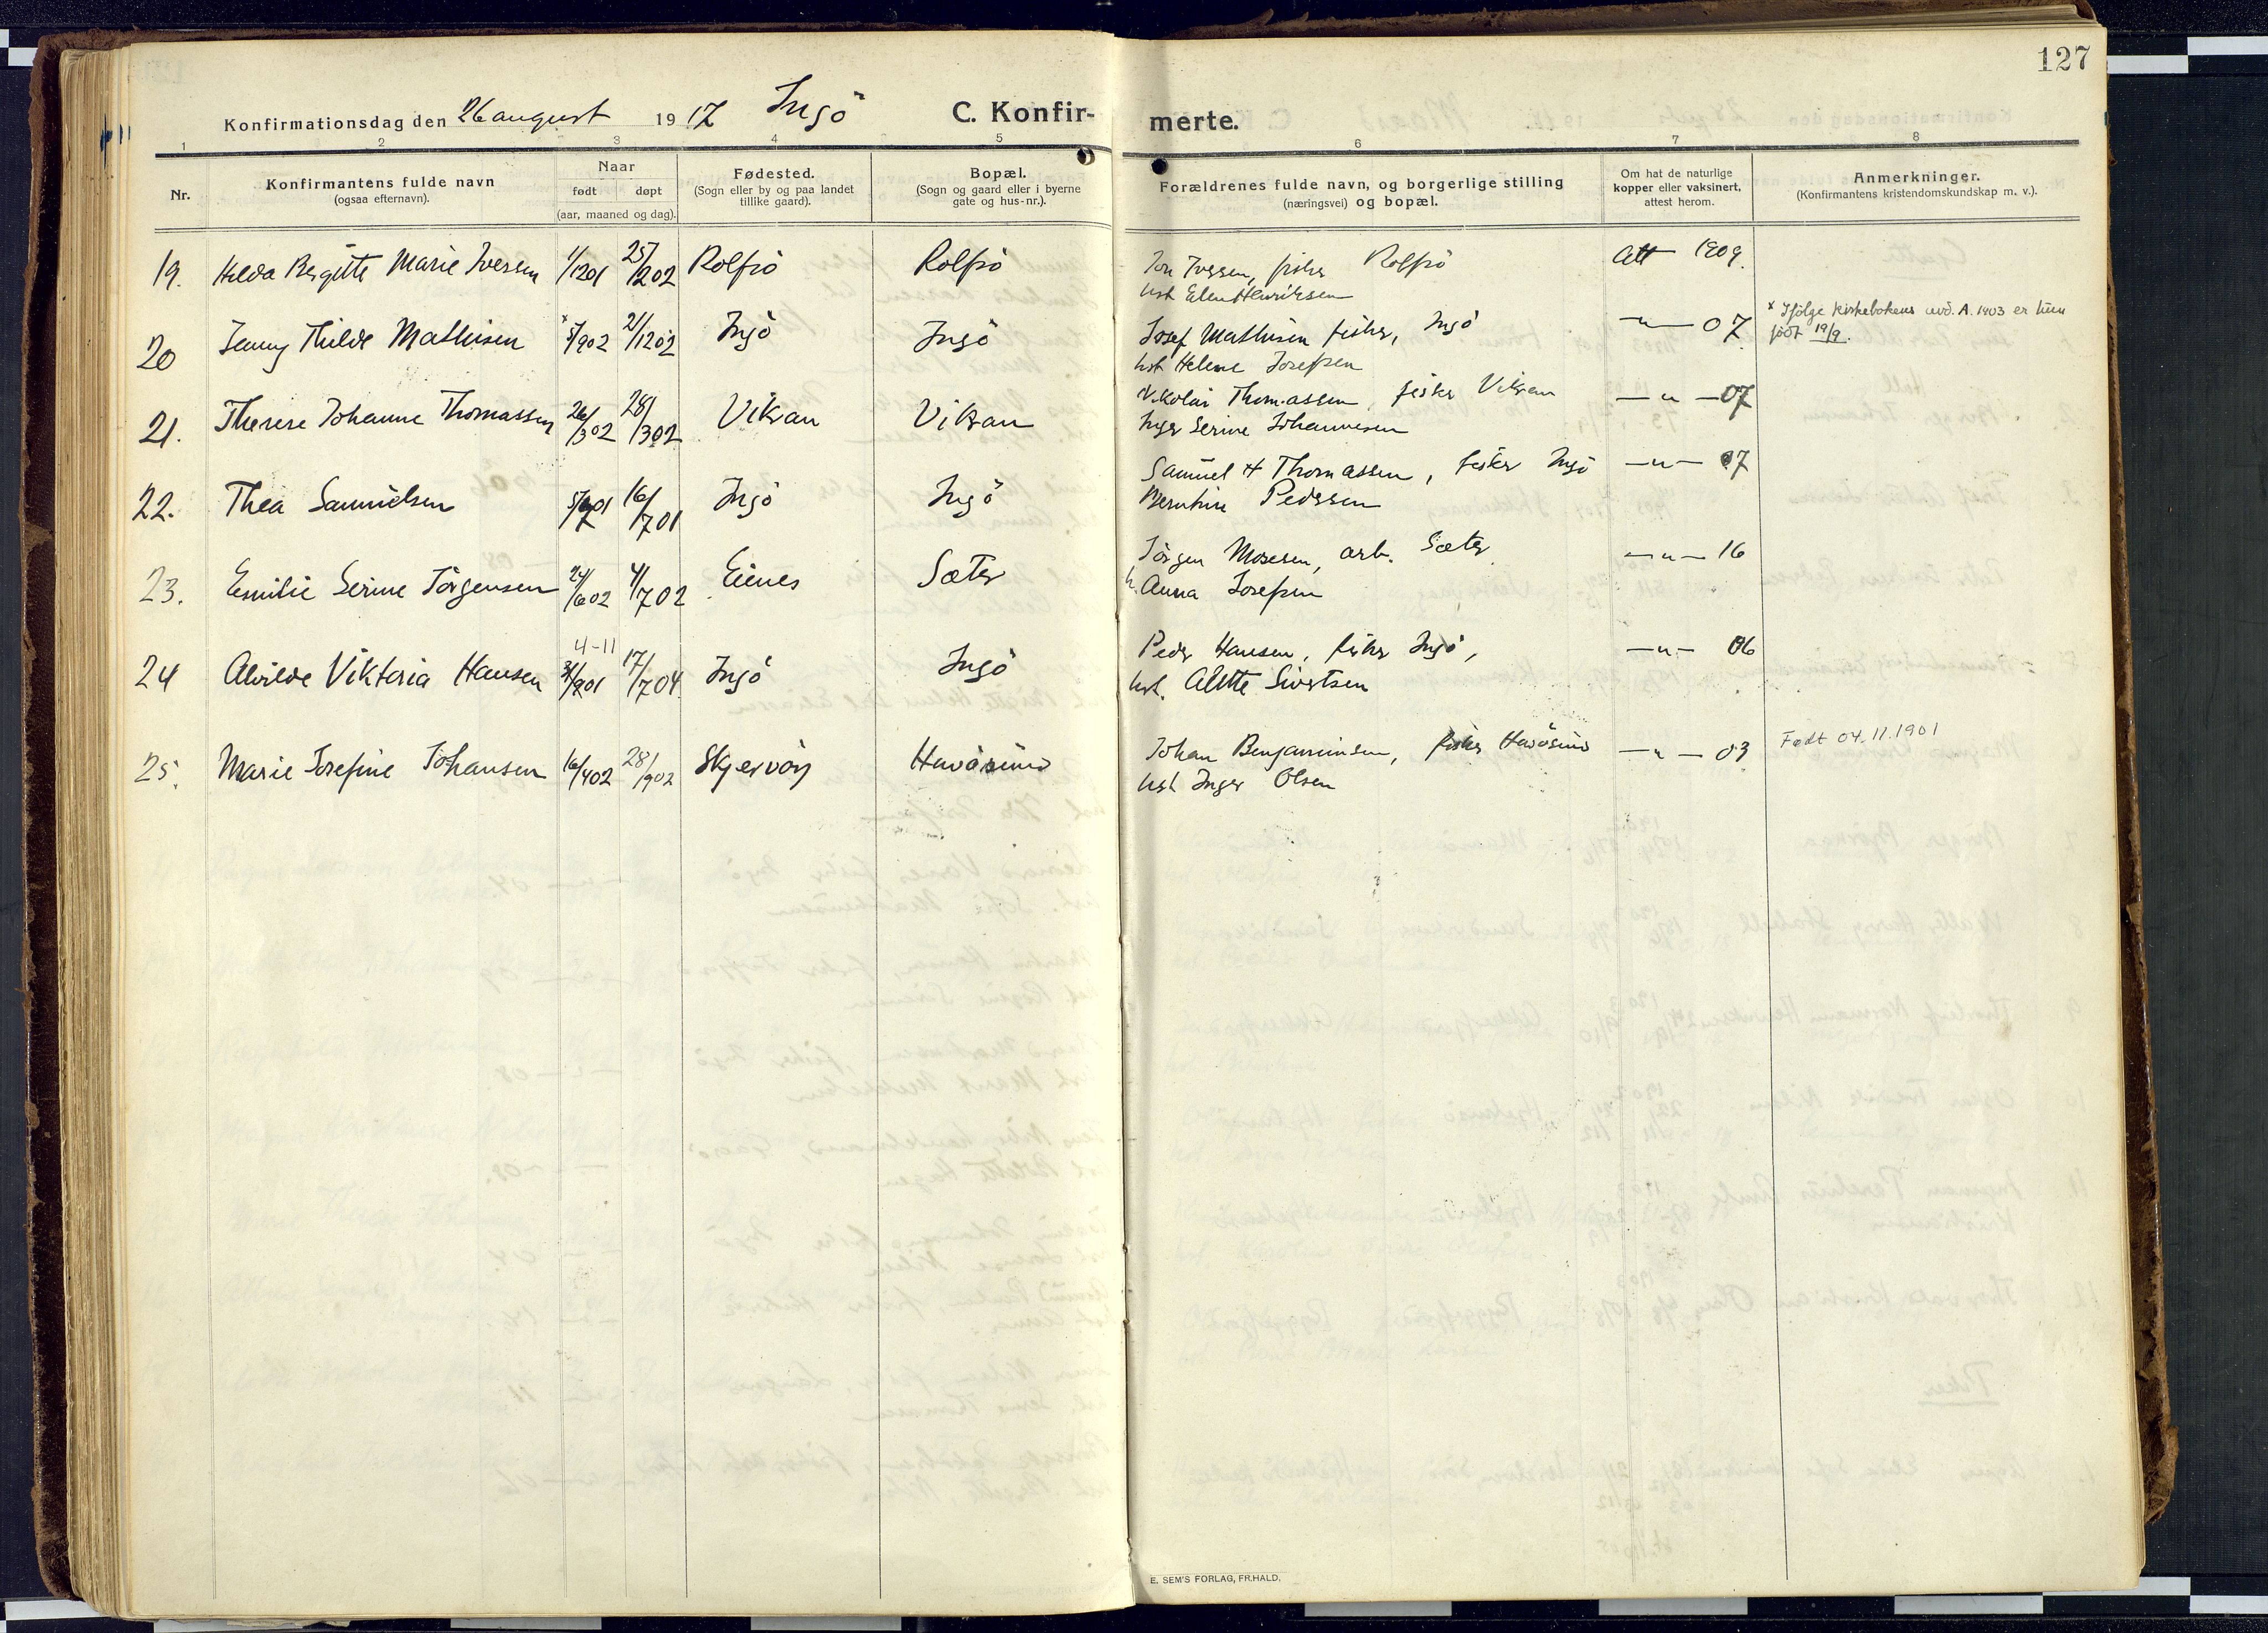 127
Konfirmationsdag den 26 august 1917 Ingö C. Konfirmerte.
1 2 3 4 5 6 7 8
Nr.
Konfirmantens fulde navn
(ogsaa efternavn).
Naar
født døpt
(aar, maaned og dag).
Fødested.
(Sogn eller by og paa landet
tillike gaard).
Bopæl.
(Sogn og gaard eller i byerne
gate og hus-nr.).
Forældrenes fulde navn, og borgerlige stilling
(næringsvei) og bopæl.
Om hat de naturlige
kopper eller vaksinert,
attest herom.
Anmerkninger.
(Konfirmantens kristendomskundskap m. v.).
19. Hilda Bergitte Marie Iversen 1/1201 25/202 Rolfsö Rolfsö Jon Iversen, fisker Rolfsö Att 1909.
hst Elen Henriksen
20 Jenny Thilde Mathisen x 5/902 21/1202 Ingö Ingö Josef Mathisen fisker, Ingö —"— 07 x Ifølge kirkebokens avd. A. 1903 er hun
født 19/9.
hst Helene Josefsen
21. Therese Johanne Thomassen 26/302 28/302 Vikran Vikran Nikolai Thomassen, fisker Vikran —"— 07
Inger Serine Johannesen
22. Thea Samuelsen 16/701 Ingö Ingö Samuel H Thomassen, fisker Ingö —"— 07
Berntine Pedersen
23. Emilie Serine Jörgensen 24/602 4/702 Eines Sæter Jörgen Mosesen, arb. Sæter —"— 16
h. Anna Josefsen
4-11
24 Alvilde Viktoria Hansen 17/704 Ingö Ingö Peder Hansen, fisker Ingö, —"— 06
hst. Alette Sivertsen
25. Marie Josefine Johansen 16/402 28/902 Skjervöy Havösund Johan Benjaminsen, fisker Havösund —"— 03 Født 04.11.1901
hst Inger Olsen
E. SEM'S FORLAG, FR.HALD.